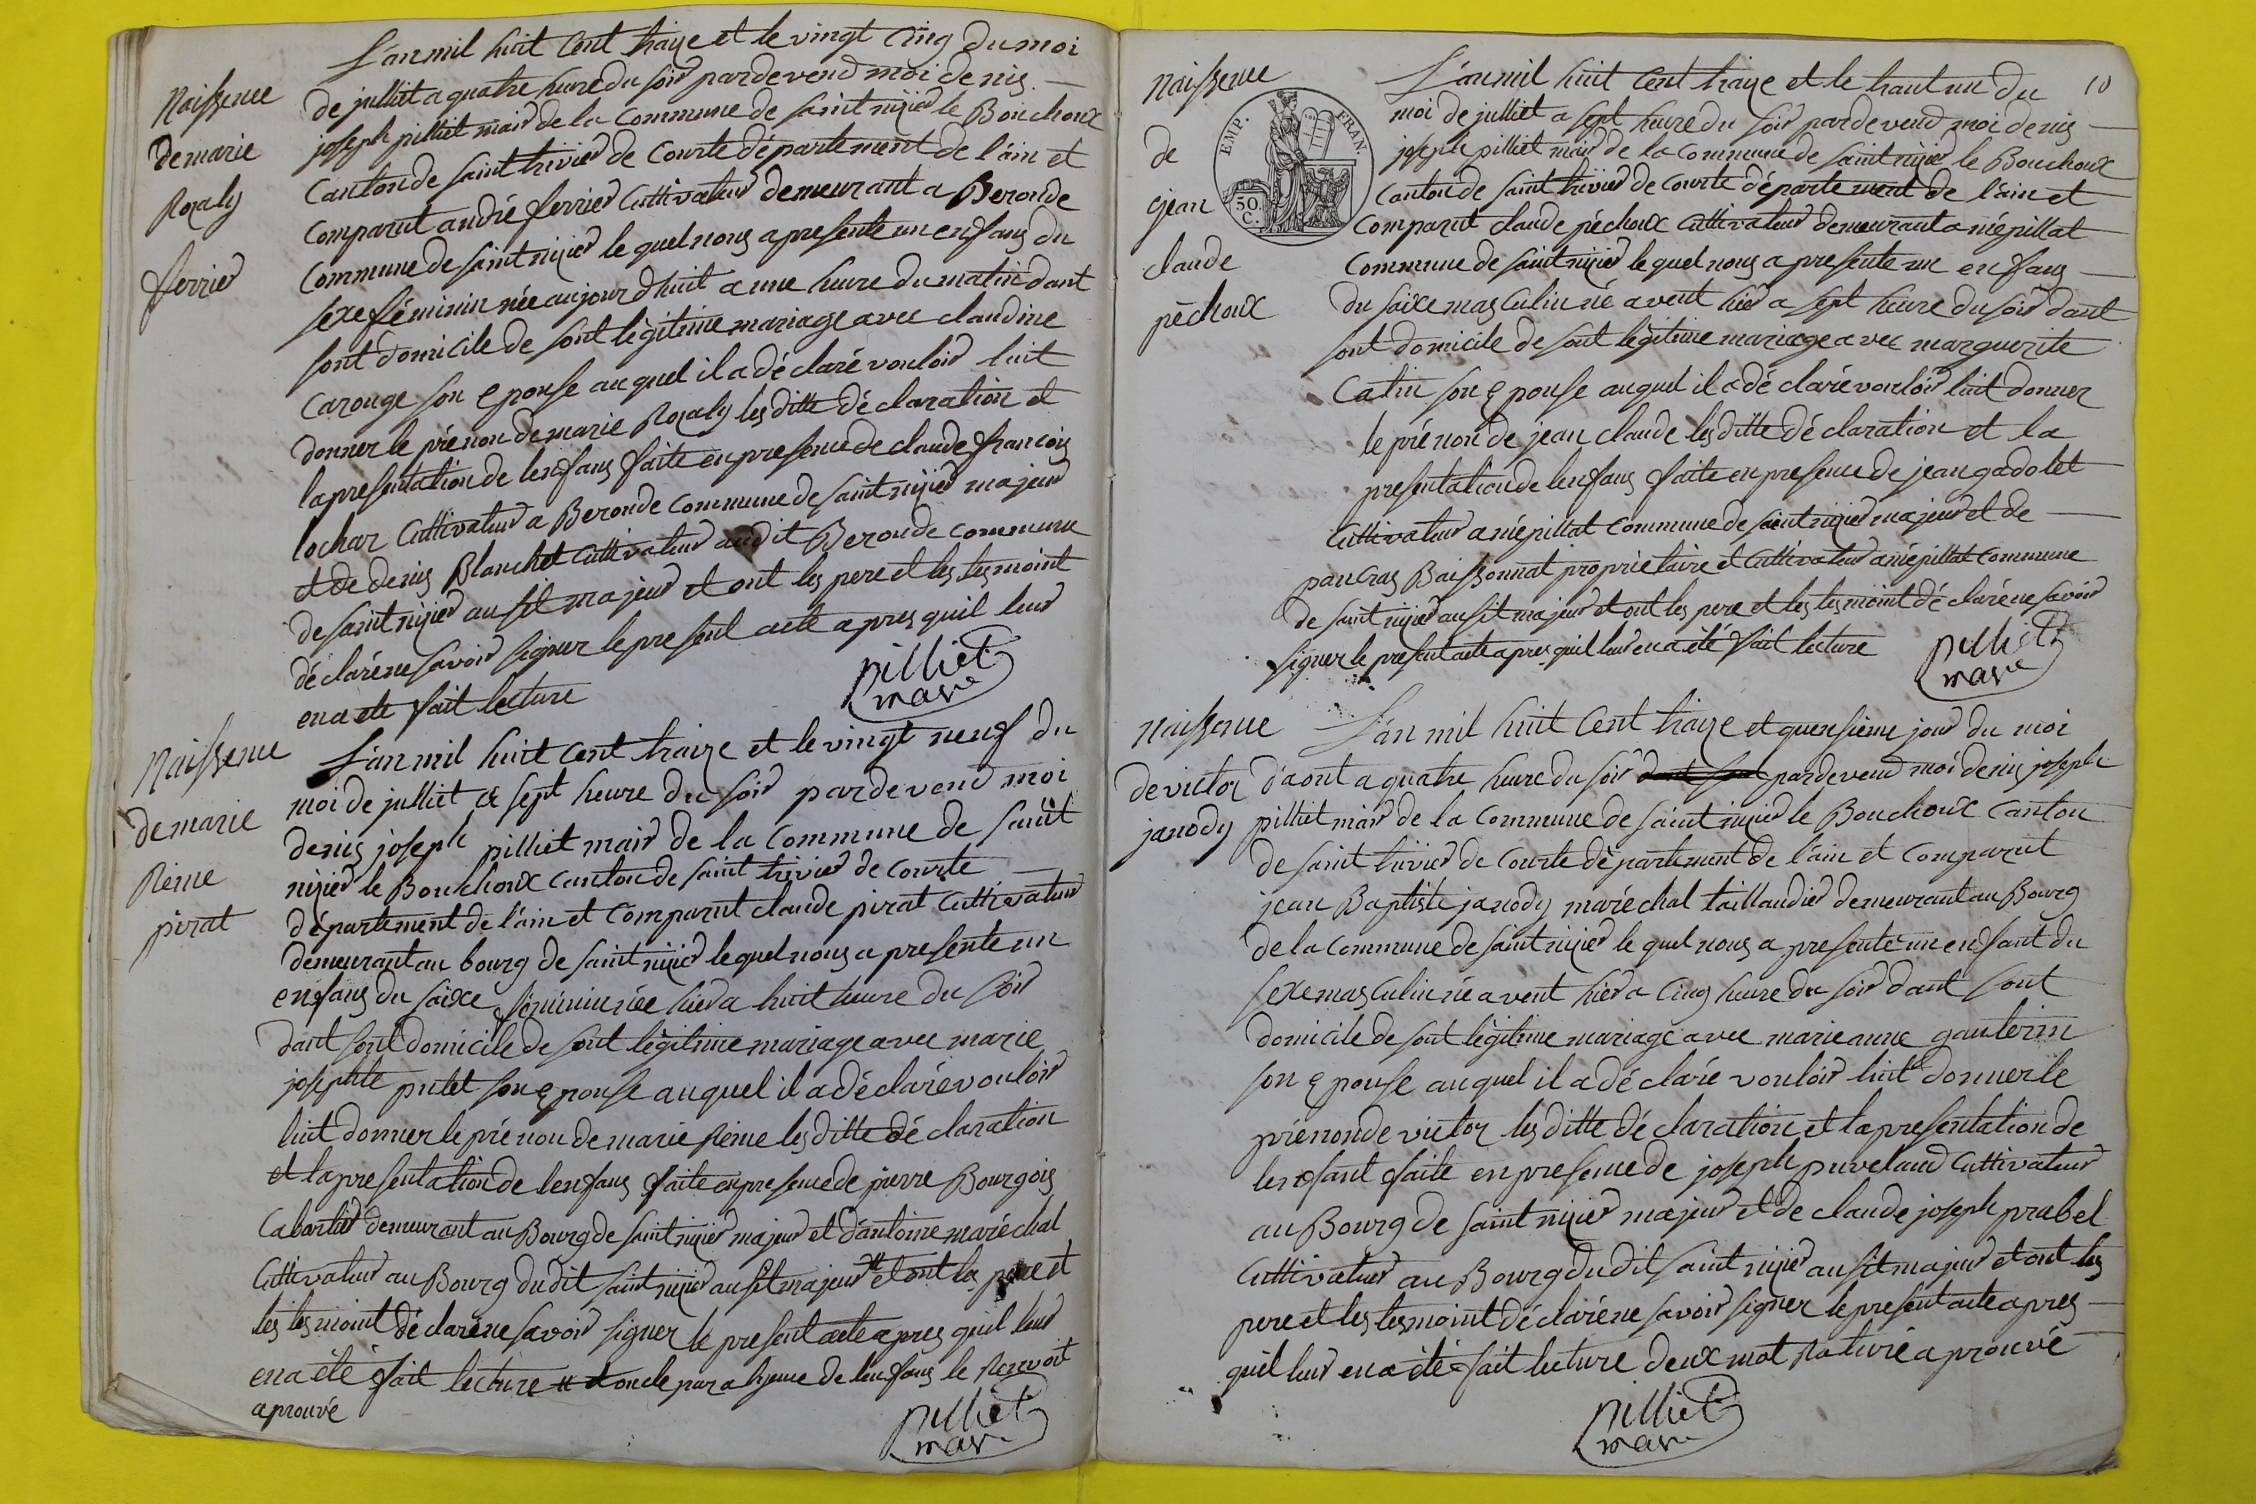 L'an mil huit Cent traize et le vingt Cinq du moi
Naissence
de marie
Rozaly
ferrier
de julliet a quatre heure du soir pardevend moi denis
joseph pilliet mair de la Commune de saint nizier le Bouchoux
Canton de saint trivier de Courte département de l'ain et
Comparut andré ferrier Cuttivateur demeurant a Beronde
Commune de saint nizier le quel nous a presente un enfans du
sexe féminin née aujourdhuit a une heure du matin dant
sont domicile de sont légitime mariage avec claudine
Carouge son epouse au quel il a déclaré vouloir luit
donner le prénon de marie Rozaly les ditte déclaration et
la presentation de lenfans faite en presence de claude francois
lochar Cuttivateur a Beronde Commune de saint nizier majeur
et de denis Blanchet Cuttivateur audit Beronde commune
de saint nizier ausit majeur et ont les pere et les tesmoint
déclaré ne savoir signer le present acte apres quil leur
en a eté fait lecture
pilliet
mair
Naissence
de marie
Reine
pirat
L'an mil huit Cent traize et le vingt neuf du
moi de julliet a sept heure du soir pardevend moi
denis joseph pilliet mair de la Commune de saint
nizier le Bouchoux canton de saint trivier de courte
département de l'ain et Comparut claude pirat Cuttivateur
demeurant au bourg de saint nizier le quel nous a presente un
enfans du saixe féminin née hier a huit heure du soir
dant sont domicile de sont légitime mariage avec marie
josephte putet son epouse au quel il a déclaré vouloir
luit donner le prénon de marie Reine les ditte déclaration
et la presentation de lenfans faite en presence de pierre Bourgois
Cabartier demeurant au Bourg de saint nizier majeur et d'antoine maréchal
Cuttivateur au Bourg dudit saint nizier ausit majeur et ont le pere et
les tesmoint déclaré ne savoir signer le present acte apres quil leur
en a été fait lecture # et oncle par a lience de lenfans le Renvoit
aprouvé
pilliet
mair
10
Naissence
de
jean
claude
péchoux
EMP. FRAN.
50.
C.
L'an mil huit Cent traize et le trant un du
moi de julliet a sept heure du soir pardevend moi denis
joseph pilliet mair de la Commune de saint nizier le Bouchoux
Canton de saint trivier de Courte département de l'ain et
Comparut claude péchoux Cuttivateur demeurant a mépillat
Commune de saint nizier le quel nous a presente un enfans
du saixe masculin né avent hier a sept heure du soir dant
sont domicile de sont légitime mariage avec marguerite
Catin son epouse au quel il a déclaré vouloir luit donner
le prénon de jean claude les ditte déclaration et la
presentation de lenfans faite en presence de jean gadolet
Cuttivateur a mépillat Commune de saint nizier majeur et de
pancras Baissonnat proprietaire et Cuttivateur a mépillat commune
de saint nizier ausit majeur et ont les pere et les tesmoint déclaré ne savoir
signer le present acte apres quil leur en a été fait lecture
pilliet
mair
Naissence
de victor
janody
L'an mil huit Cent traize et quensieme jour du moi
d'aout a quatre heure du soir pardevend moi denis joseph
pilliet mair de la Commune de saint nizier le Bouchoux Canton
de saint trivier de Courte département de l'ain et Comparut
jean Baptiste janody maréchal taillandier demeurant au Bourg
de la Commune de saint nizier le quel nous a presente un enfant du
sexe masculin né avent hier a Cinq heure du soir dant sont
domicile de sont légitime mariage avec marie anne gauterin
son epouse au quel il a déclaré vouloir luit donner le
prénon de victor les ditte déclaration et la presentation de
lenfant faite en presence de joseph puveland Cuttivateur
au Bourg de saint nizier majeur et de claude joseph prabel
Cuttivateur au Bourg dudit saint nizier ausit majeur et ont les
pere et les tesmoint déclaré ne savoir signer le présent acte apres
quil leur en a été fait lecture deux mot Raturé aprouvé
pilliet
mair